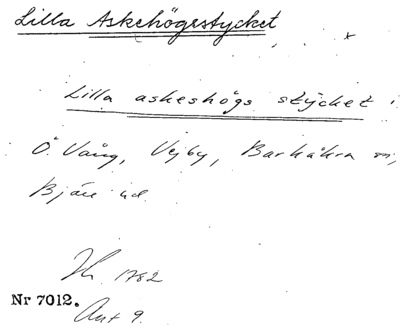 Lilla Askehögestycket
Lilla askeshögs stycket i
Ö. Vång, Vejby, Barkåkra sn,
Bjäre hd.
1782
Nr 7012.
Akt 9.